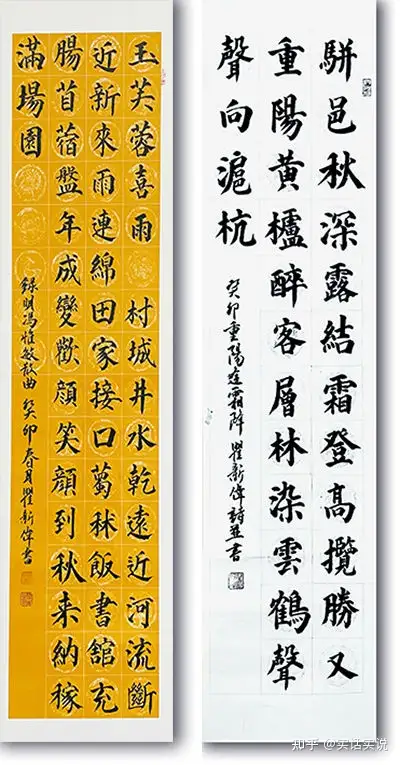 玉芙蓉喜雨 村城井水乾遠近河流斷
近新來雨連綿田家接口蔔秫飯書館充
腸苜蓿盤年成變歡顏笑顏到秋来納稼
滿場園
錄明馮惟敏散曲 癸卯春月瞿新偉書
駢邑秋深露結霜登高攬勝又
重陽黃櫨醉客層林染雲鶴聲
聲向滬杭
癸卯重陽逢霜降 瞿新偉詩並書
知乎 @实话实说